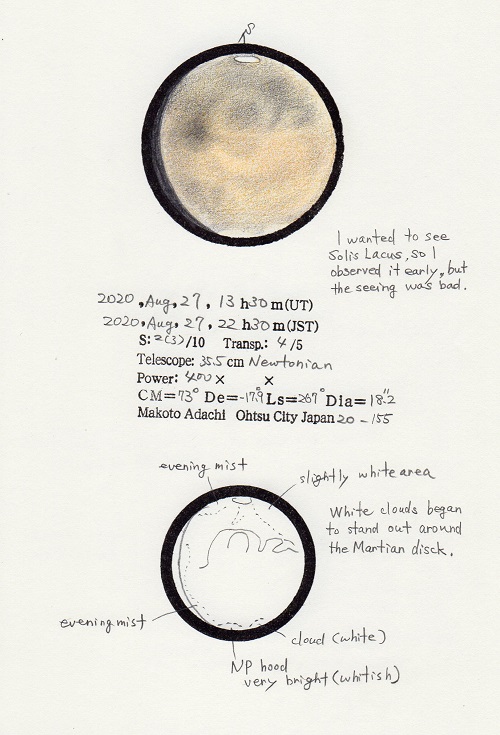 S
I wanted to see
Solis Lacus, so I
observed it early, but
the seeing was bad.
2020, Aug, 27, 13 h30m(UT)
2020, Aug, 27, 22 h30m(JST)
S: 2(3)/10 Transp.: 4/5
Telescope: 35.5 cm Newtonian
Power: 400× ×
CM=73° De=-17.9° Ls=267° Dia=18.2"
Makoto Adachi Ohtsu City Japan 20-155
evening mist
slightly white area
White clouds began
to stand out around
the Martian disck.
evening mist
cloud (white)
NP hood
very bright (whitish)